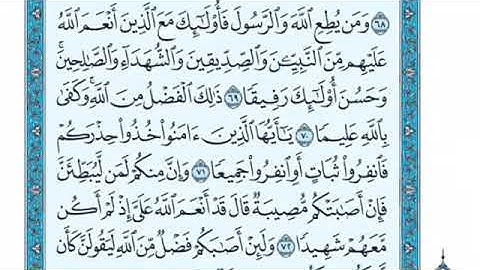 ٦٨ وَمَن يُطِعِ ٱللَّهَ وَٱلرَّسُولَ فَأُو۟لَـٰٓئِكَ مَعَ ٱلَّذِينَ أَنۡعَمَ ٱللَّهُ
عَلَيۡهِم مِّنَ ٱلنَّبِيِّـۧنَ وَٱلصِّدِّيقِينَ وَٱلشُّهَدَآءِ وَٱلصَّـٰلِحِينَۚ
وَحَسُنَ أُو۟لَـٰٓئِكَ رَفِيقٗا ٦٩ ذَٰلِكَ ٱلۡفَضۡلُ مِنَ ٱللَّهِۚ وَكَفَىٰ
بِٱللَّهِ عَلِيمٗا ٧٠ يَـٰٓأَيُّهَا ٱلَّذِينَ ءَامَنُوا۟ خُذُوا۟ حِذۡرَكُمۡ
فَٱنفِرُوا۟ ثُبَاتٍ أَوِ ٱنفِرُوا۟ جَمِيعٗا ٧١ وَإِنَّ مِنكُمۡ لَمَن لَّيُبَطِّئَنَّ
فَإِنۡ أَصَـٰبَتۡكُم مُّصِيبَةٞ قَالَ قَدۡ أَنۡعَمَ ٱللَّهُ عَلَيَّ إِذۡ لَمۡ أَكُن
مَّعَهُمۡ شَهِيدٗا ٧٢ وَلَئِنۡ أَصَـٰبَكُمۡ فَضۡلٞ مِّنَ ٱللَّهِ لَيَقُولَنَّ كَأَن